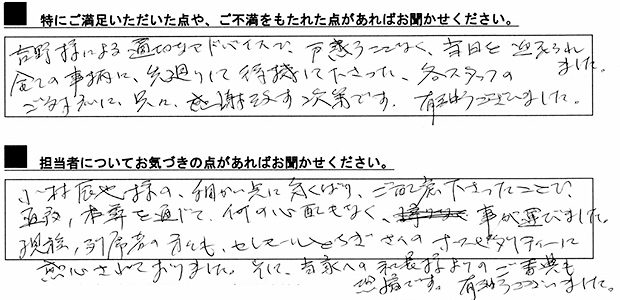 ■ 特にご満足いただいた点や、ご不満をもたれた点があればお聞かせください。
吉野様による適切なアドバイスで、戸惑うことなく、当日を迎えられ
ました。
全ての事柄に、先廻りして待機して下さった、各スタッフの
ご対応に、只々、感謝致す次第です。有難うございました。
■ 担当者についてお気づきの点があればお聞かせください。
小村辰也様の、細かい点に気くばり、ご配慮下さったことで、
通夜、本葬を通じて、何の心配もなく、事が運びました。
親族、列席者の方々も、セレモールとちぎさんのホスピタリティーに
感心されておりました。又に、当家への社長様よりのご香典も
恐縮です。有難うございました。